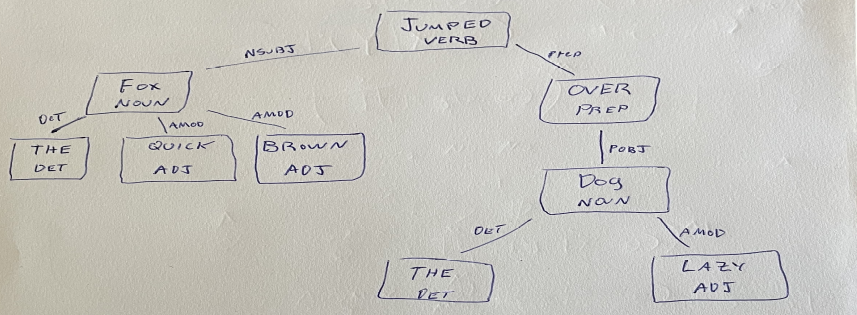 JUMPED
VERB
NSUBJ
PREP
FOX
NOUN
OVER
PREP
DET
AMOD
AMOD
THE
DET
QUICK
ADJ
BROWN
ADJ
POBJ
Dog
NOUN
DET
AMOD
THE
DET
LAZY
ADJ